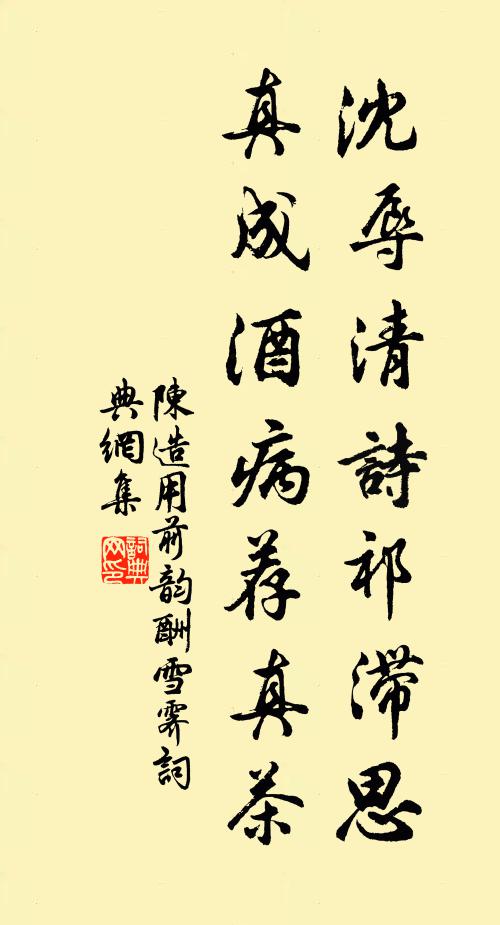 沈辱清詩祁滯思
真成酒病荐真茶
陳造用前韵酬雪霽詞
典網集
詞典
网印